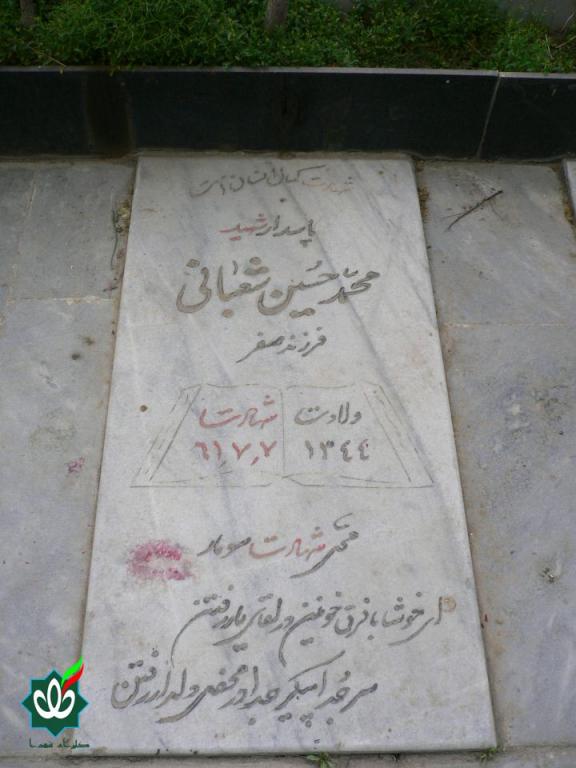 شهادت کمال انسان است
پاسدار شهید
محمد حسین شعبانی
فرزند صفر
ولادت شهادت
۱۳۴۴ ۶۱٫۷٫۷
محل شهادت سومار
ای خوشا با فرق خونین در لقای یار رفتن
سر جدا پیکر جدا در محفل دلدار رفتن
گلزار شهدا